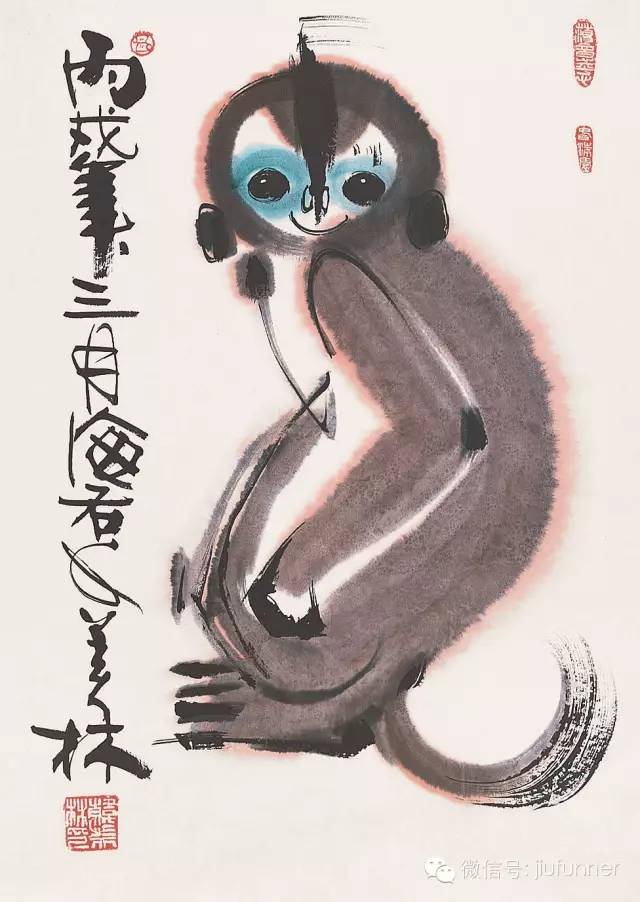 丙戌年三月海右人美林
微信号: jiufunner